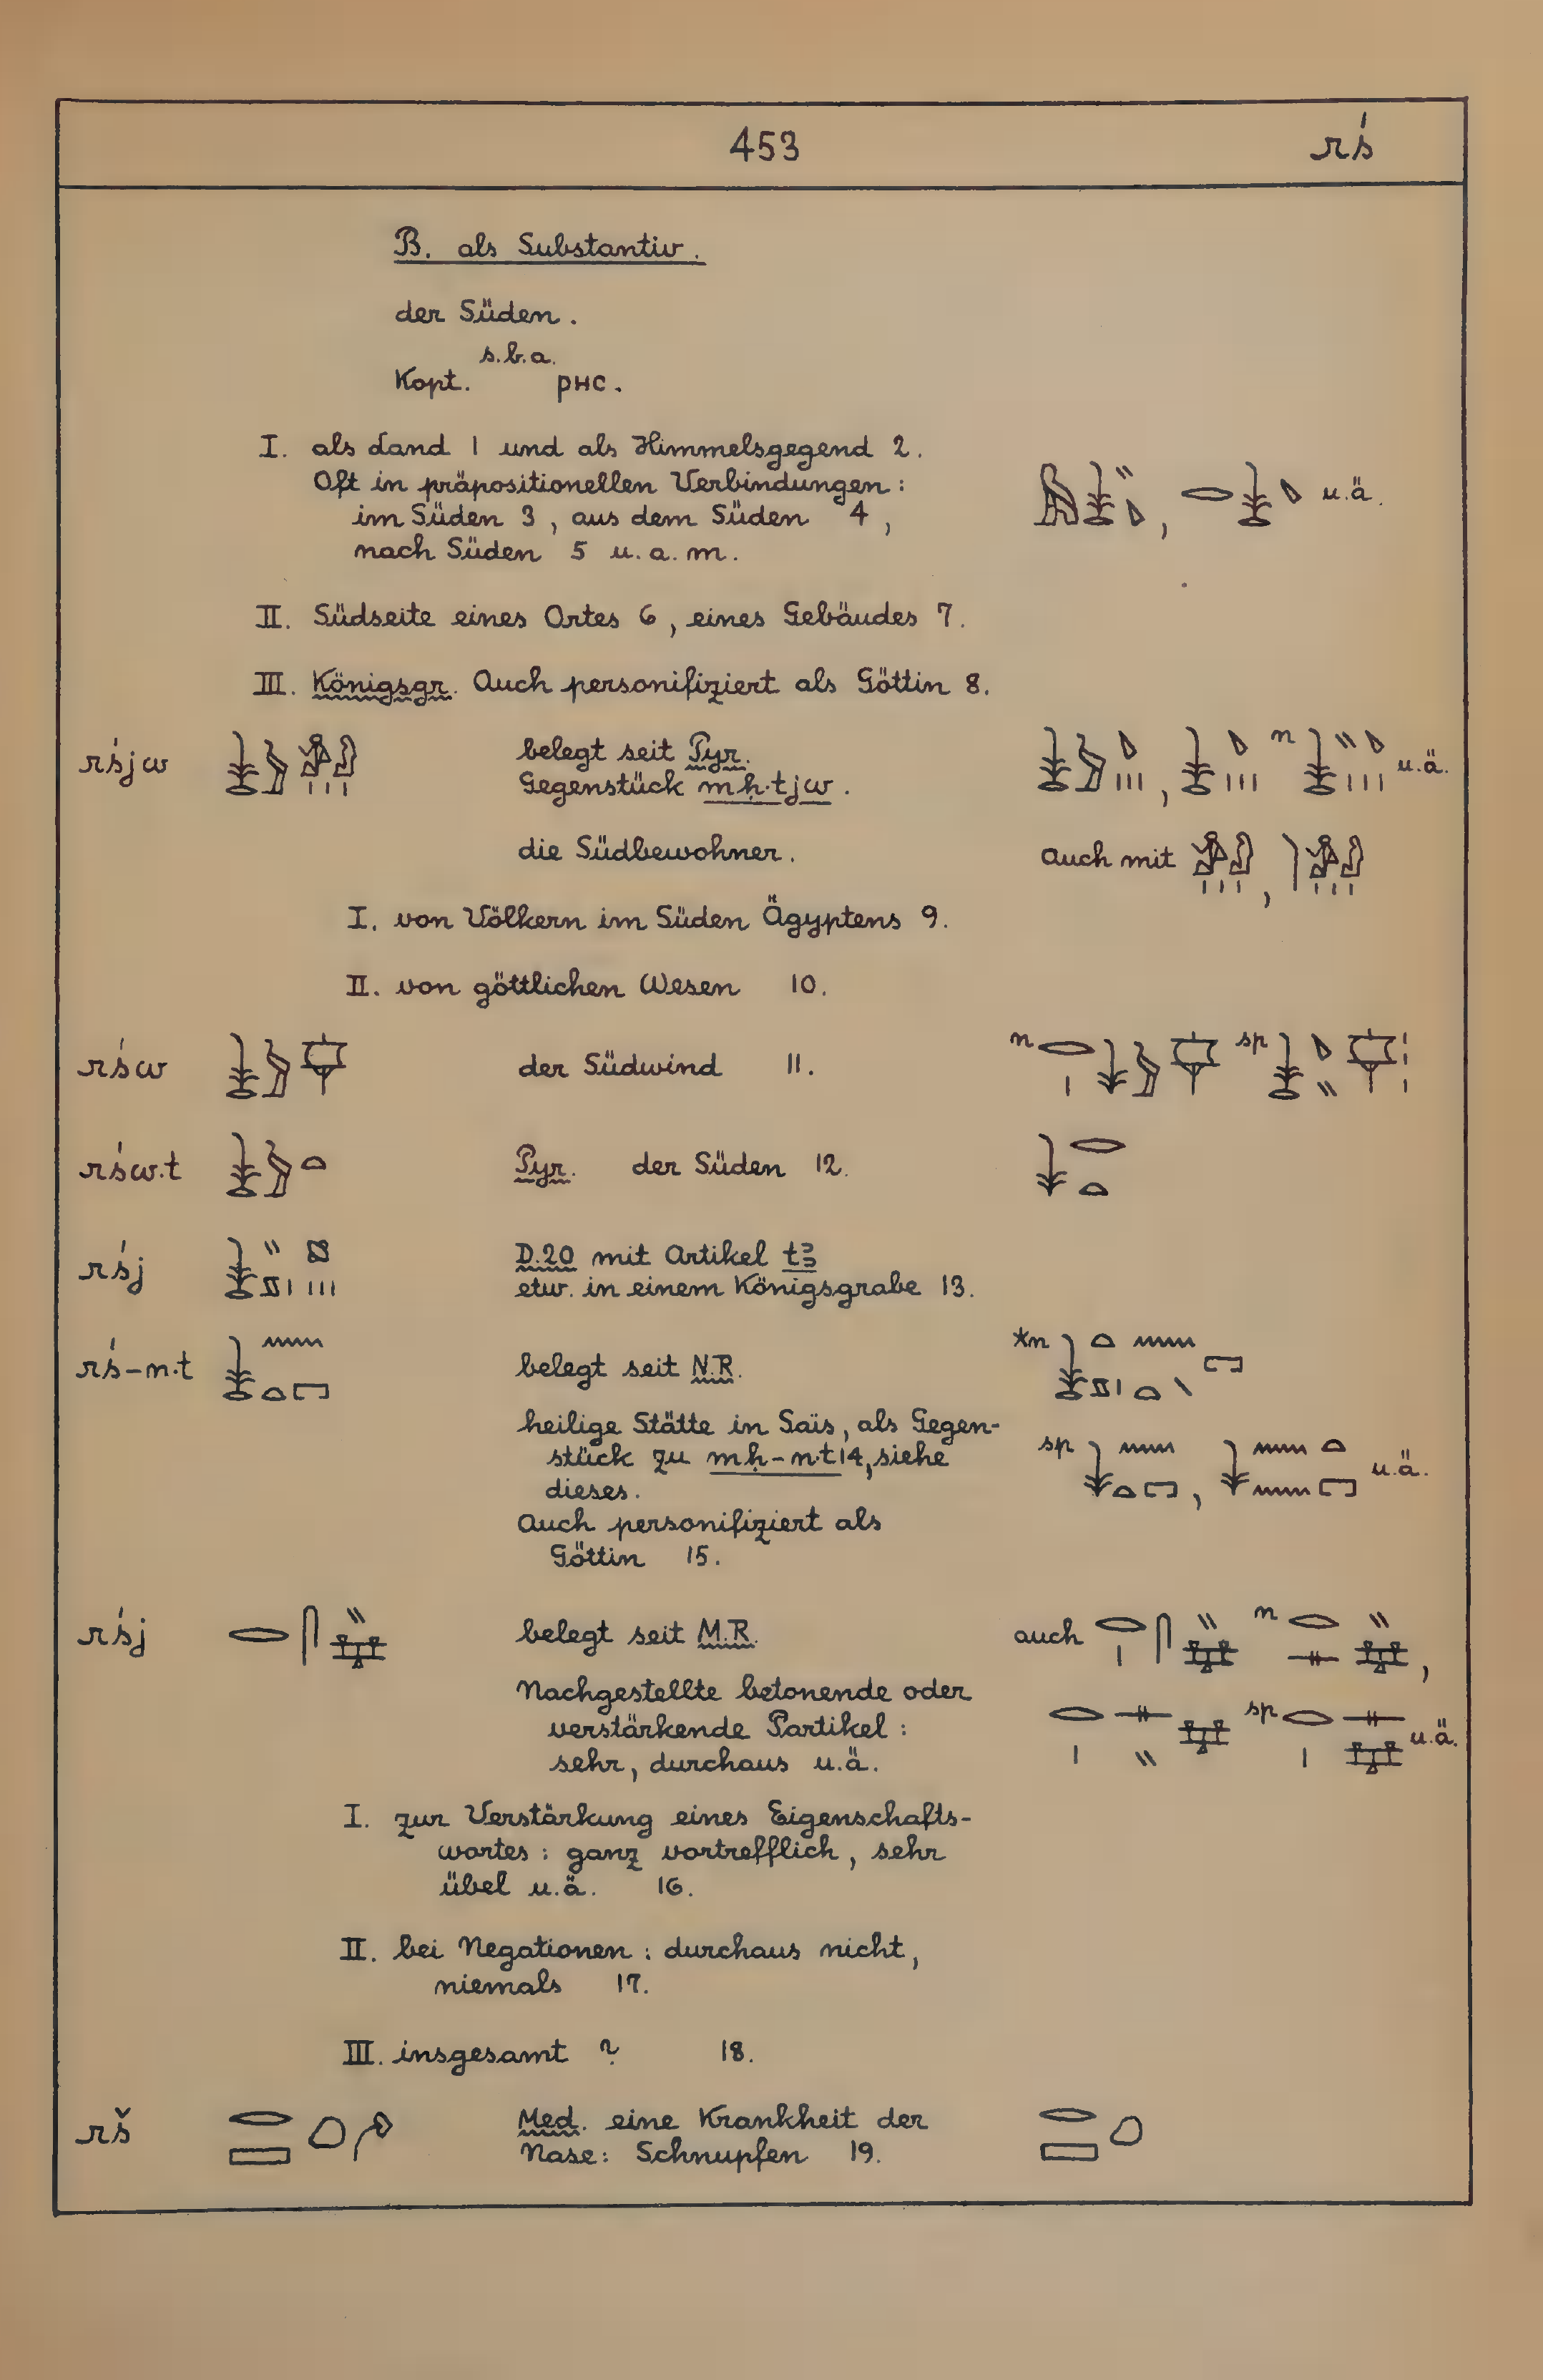 453 rś
B. als Substantiv.
der Süden.
s.b.a.
Kopt. ⲣⲏⲥ.
I. als Land 1 und als Himmelsgegend 2.
Oft in präpositionellen Verbindungen:
im Süden 3, aus dem Süden 4,
nach Süden 5 u.a.m.
u.ä.
II. Südseite eines Ortes 6, eines Gebäudes 7.
III. Königsgr. Auch personifiziert als Göttin 8.
rśjw belegt seit Pyr. n u.ä.
Gegenstück mḥ.tjw.
die Südbewohner. auch mit
I. von Völkern im Süden Ägyptens 9.
II. von göttlichen Wesen 10.
rśw der Südwind 11. n sp
rśw.t Pyr. der Süden 12.
rśj D.20 mit Artikel tꜣ
etw. in einem Königsgrabe 13.
rś-n.t belegt seit N.R. *n
heilige Stätte in Saïs, als Gegen-
stück zu mḥ-n.t 14, siehe
dieses.
sp u.ä.
Auch personifiziert als
Göttin 15.
rśj belegt seit M.R. auch n
Nachgestellte betonende oder
verstärkende Partikel: sp u.ä.
sehr, durchaus u.ä.
I. zur Verstärkung eines Eigenschafts-
wortes: ganz vortrefflich, sehr
übel u.ä. 16.
II. bei Negationen: durchaus nicht,
niemals 17.
III. insgesamt ? 18.
rš Med. eine Krankheit der
Nase: Schnupfen 19.